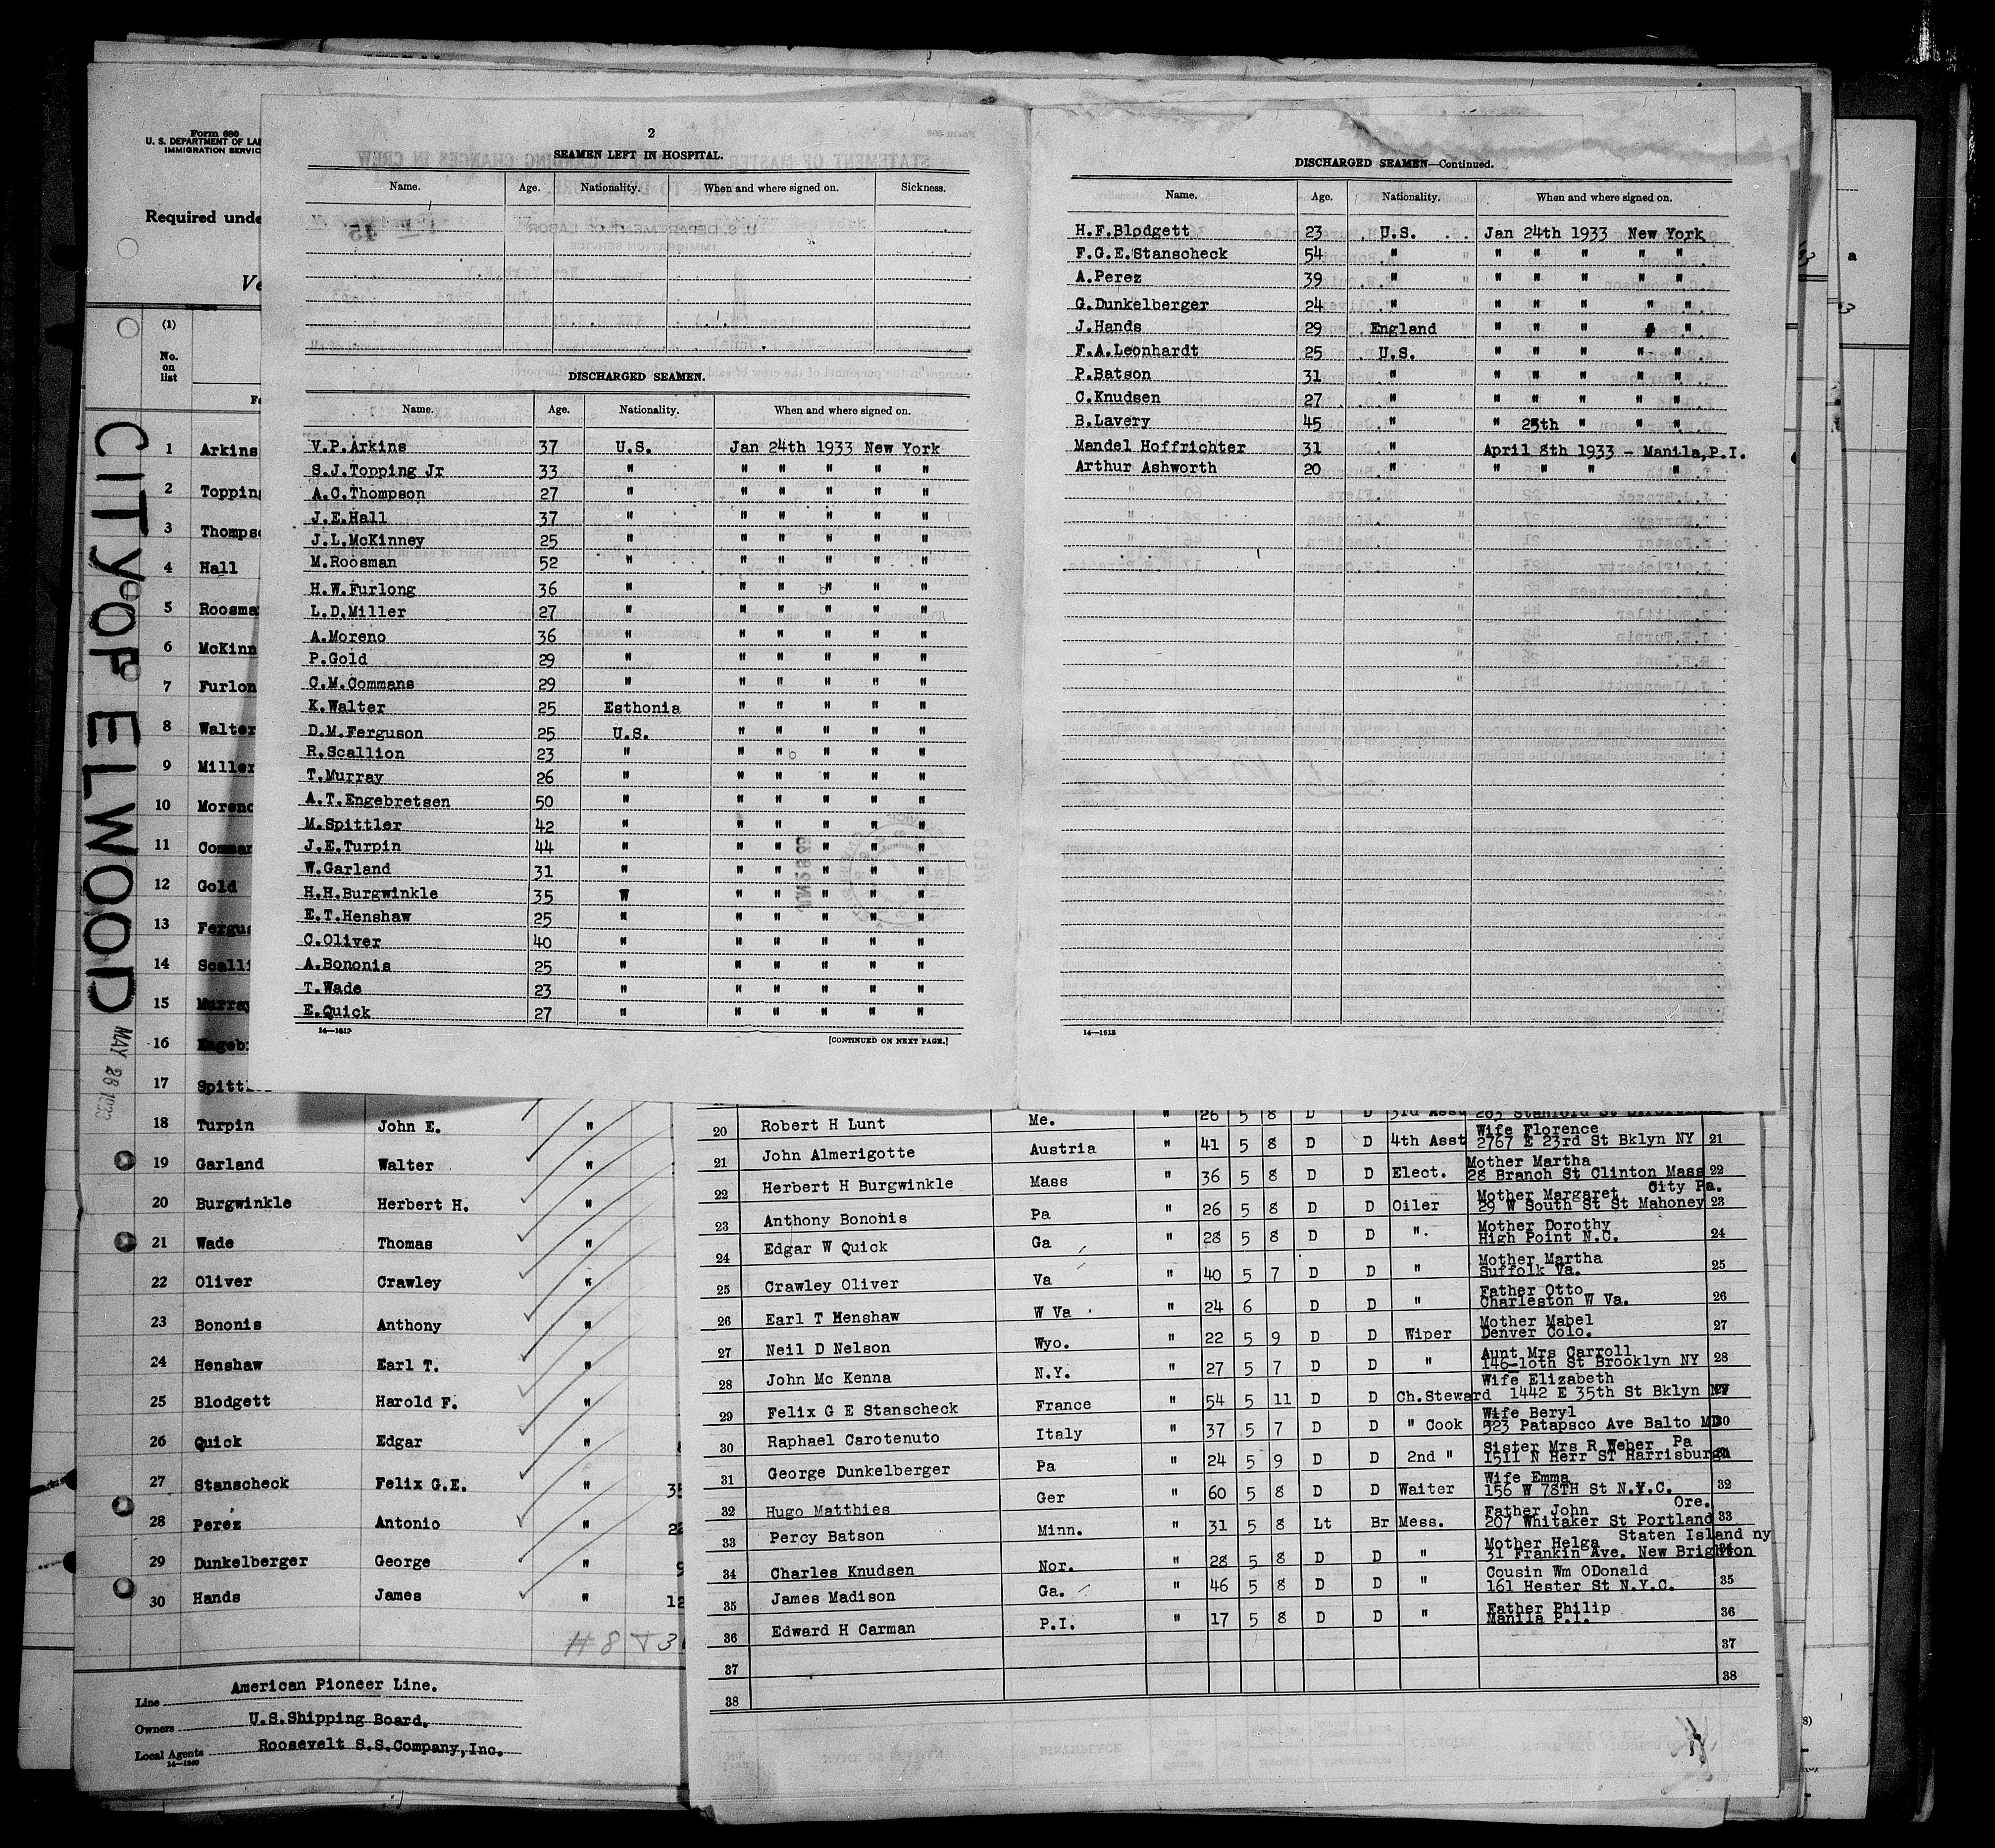 Form 680
U. S. DEPARTMENT OF LAB
IMMIGRATION SERVIC
Required unde
Ve
CITY OF ELWOOD
MAY 28 1933
(1)
No. on list
2
SEAMEN LEFT IN HOSPITAL.
Name. Age. Nationality. When and where signed on. Sickness.
DISCHARGED SEAMEN.
Name. Age. Nationality. When and where signed on.
V.P.Arkins 37 U.S. Jan 24th 1933 New York
S.J.Topping Jr 33 " " " " " "
A.C.Thompson 27 " " " " " "
J.E.Hall 37 " " " " " "
J.L.McKinney 25 " " " " " "
M.Roosman 52 " " " " " "
H.W.Furlong 36 " " " " " "
L.D.Miller 27 " " " " " "
A.Moreno 36 " " " " " "
P.Gold 29 " " " " " "
C.M.Commans 29 " " " " " "
K.Walter 25 Esthonia " " " " "
D.M.Ferguson 25 U.S. " " " " "
R.Scallion 23 " " " " " "
T.Murray 26 " " " " " "
A.T.Engebretsen 50 " " " " " "
M.Spittler 42 " " " " " "
J.E.Turpin 44 " " " " " "
W.Garland 31 " " " " " "
H.H.Burgwinkle 35 " " " " " "
E.T.Henshaw 25 " " " " " "
C.Oliver 40 " " " " " "
A.Bononis 25 " " " " " "
T.Wade 23 " " " " " "
E.Quick 27 " " " " " "
14—1613
[CONTINUED ON NEXT PAGE.]
DISCHARGED SEAMEN—Continued.
Name. Age. Nationality. When and where signed on.
H.F.Blodgett 23 U.S. Jan 24th 1933 New York
F.G.E.Stanscheck 54 " " " " " "
A.Perez 39 " " " " " "
G.Dunkelberger 24 " " " " " "
J.Hands 29 England " " " " "
F.A.Leonhardt 25 U.S. " " " " "
P.Batson 31 " " " " " "
C.Knudsen 27 " " " " " "
B.Lavery 45 " " 25th " " "
Mandel Hoffrichter 31 " April 8th 1933 - Manila,P.I.
Arthur Ashworth 20 " " " " "
14—1613
1 Arkins
2 Topping
3 Thomps
4 Hall
5 Roosma
6 McKinn
7 Furlon
8 Walter
9 Miller
10 Moreno
11 Comman
12 Gold
13 Fergus
14 Scalli
15 Murray
16 Engeb
17 Spittl
18 Turpin John E. "
19 Garland Walter "
20 Burgwinkle Herbert H. "
21 Wade Thomas "
22 Oliver Crawley "
23 Bononis Anthony "
24 Henshaw Earl T. "
25 Blodgett Harold F. "
26 Quick Edgar "
27 Stanscheck Felix G.E. "
28 Perez Antonio "
29 Dunkelberger George "
30 Hands James "
Line American Pioneer Line.
Owners U.S.Shipping Board.
Local Agents Roosevelt S.S.Company,Inc.
14—1240
20 Robert H Lunt Me. " 26 5 8 D D 3rd Asst
21 John Almerigotte Austria " 41 5 8 D D 4th Asst Wife Florence 2767 E 23rd St Bklyn NY 21
22 Herbert H Burgwinkle Mass " 36 5 8 D D Elect. Mother Martha 28 Branch St Clinton Mass 22
23 Anthony Bononis Pa " 26 5 8 D D Oiler Mother Margaret City Pa. 29 W South St St Mahoney 23
24 Edgar W Quick Ga " 28 5 8 D D " Mother Dorothy High Point N.C. 24
25 Crawley Oliver Va " 40 5 7 D D " Mother Martha Suffolk Va. 25
26 Earl T Henshaw W Va " 24 6 D D " Father Otto Charleston W Va. 26
27 Neil D Nelson Wyo. " 22 5 9 D D Wiper Mother Mabel Denver Colo. 27
28 John Mc Kenna N.Y. " 27 5 7 D D " Aunt Mrs Carroll 146-10th St Brooklyn NY 28
29 Felix G E Stanscheck France " 54 5 11 D D Ch.Steward Wife Elizabeth 1442 E 35th St Bklyn NY
30 Raphael Carotenuto Italy " 37 5 7 D D " Cook Wife Beryl 523 Patapsco Ave Balto MD 30
31 George Dunkelberger Pa " 24 5 9 D D 2nd " Sister Mrs R Weber Pa 1511 N Herr ST Harrisburg
32 Hugo Matthies Ger " 60 5 8 D D Waiter Wife Emma 156 W 78TH St N.Y.C. 32
33 Percy Batson Minn. " 31 5 8 Lt Br Mess. Father John Ore. 207 Whitaker St Portland 33
34 Charles Knudsen Nor. " 28 5 8 D D " Mother Helga Staten Island ny 31 Frankin Ave. New Brighton
35 James Madison Ga. " 46 5 8 D D " Cousin Wm ODonald 161 Hester St N.Y.C. 35
36 Edward H Carman P.I. " 17 5 8 D D " Father Philip Manila P.I. 36
37 37
38 38